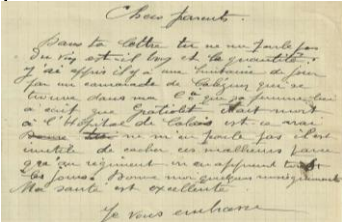 Chers parents.
Dans ta lettre tu ne me parle pas
du vin est il bon et la quantité.
J'ai appris il y a une huitaine de jour
par un camarade de que se
trouve dans ma
à sait que était mort
à l'Hopital de Calais est ce vrai
ne m'en parle pas il est
inutile de cacher ces malheurs parce
qu'au régiment on en apprend
les jours. Donne moi quelques renseignements
Ma santé est excellente
Je vous embrasse